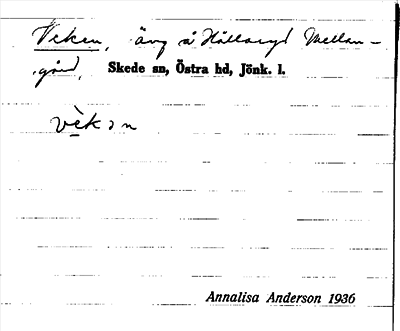 Veken, äng å Hållaryd Mellan-
gård, Skede sn, Östra hd, Jönk. l.
vèkɔn
Annalisa Anderson 1936